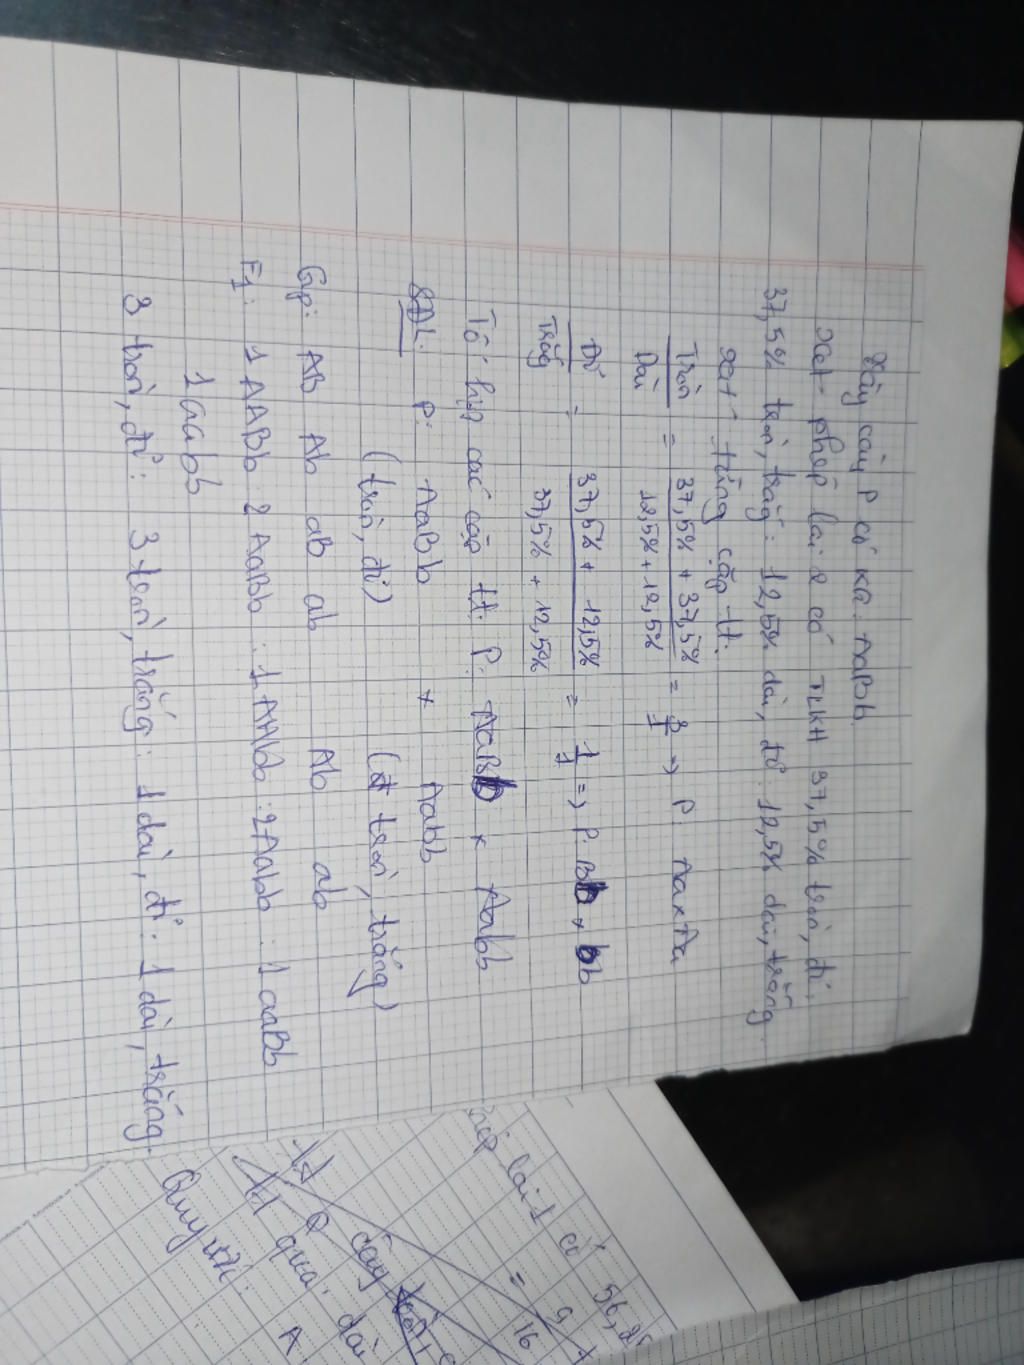 Vậy cây P có KG: AaBb
Xét phép lai 2 có TLKH 37,5% tròn, đỏ:
37,5% tròn, trắng: 12,5% dài, đỏ: 12,5% dài, trắng
Xét từng cặp tt.
Tròn / Dài = 37,5% + 37,5% / 12,5% + 12,5% = 3/1 => P: Aa x Aa
Đỏ / Trắng = 37,5% + 12,5% / 37,5% + 12,5% = 1/1 => P: Bb x bb
Tổ hợp các cặp tt. P: AaBb x Aabb
SĐL: P: AaBb x Aabb
(tròn, đỏ) (tròn, trắng)
Gp: AB Ab aB ab Ab ab
F1: 1 AABb : 2 AaBb : 1 AAbb : 2Aabb : 1 aaBb
1 aabb
3 tròn, đỏ: 3 tròn, trắng: 1 dài, đỏ: 1 dài, trắng.
phép lai 1 có 56,25
= 9/16
cây
qua dài
Quy ước: A